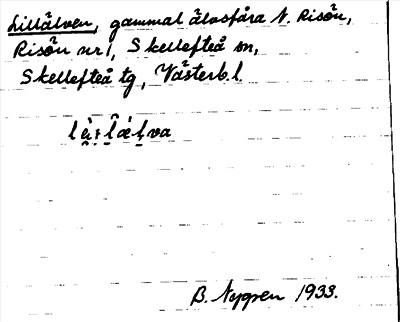 Lillälven, gammal älvsfåra N. Risön,
Risön nr 1, Skellefteå sn,
Skellefteå tg, Västerb. l.
B. Nygren 1933.